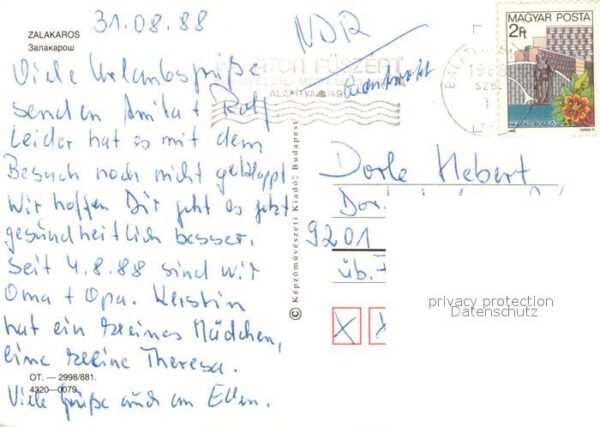 31.08.88
ZALAKAROS
Залакарош
Viele Urlaubsgrüße
senden Anita + Rolf
Leider hat es mit dem
Besuch noch nicht geklappt
Wir hoffen Dir geht es jetzt
gesundheitlich besser.
Seit 4.8.88 sind wir
Oma + Opa. Kerstin
hat ein kleines Mädchen,
eine kleine Theresa.
OT. — 2998/881.
4320—0079
Viele Grüße auch an Ellen.
© Képzőművészeti Kiadó, Budapest
BALATON FÜSZÉRT
MAGYAR POSTA
2Ft
Dorle Hebert
Dor.
9201
üb.
X X
privacy protection
Datenschutz